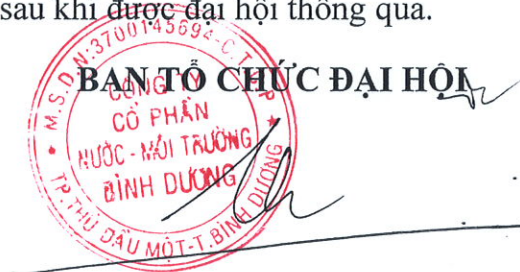 sau khi được đại hội thông qua.
BAN TỔ CHỨC ĐẠI HỘI
M.S.D.N:3700145694-C.T.C.P
CÔNG TY
CỔ PHẦN
NƯỚC - MÔI TRƯỜNG
BÌNH DƯƠNG
TP.THỦ DẦU MỘT-T.BÌNH DƯƠNG